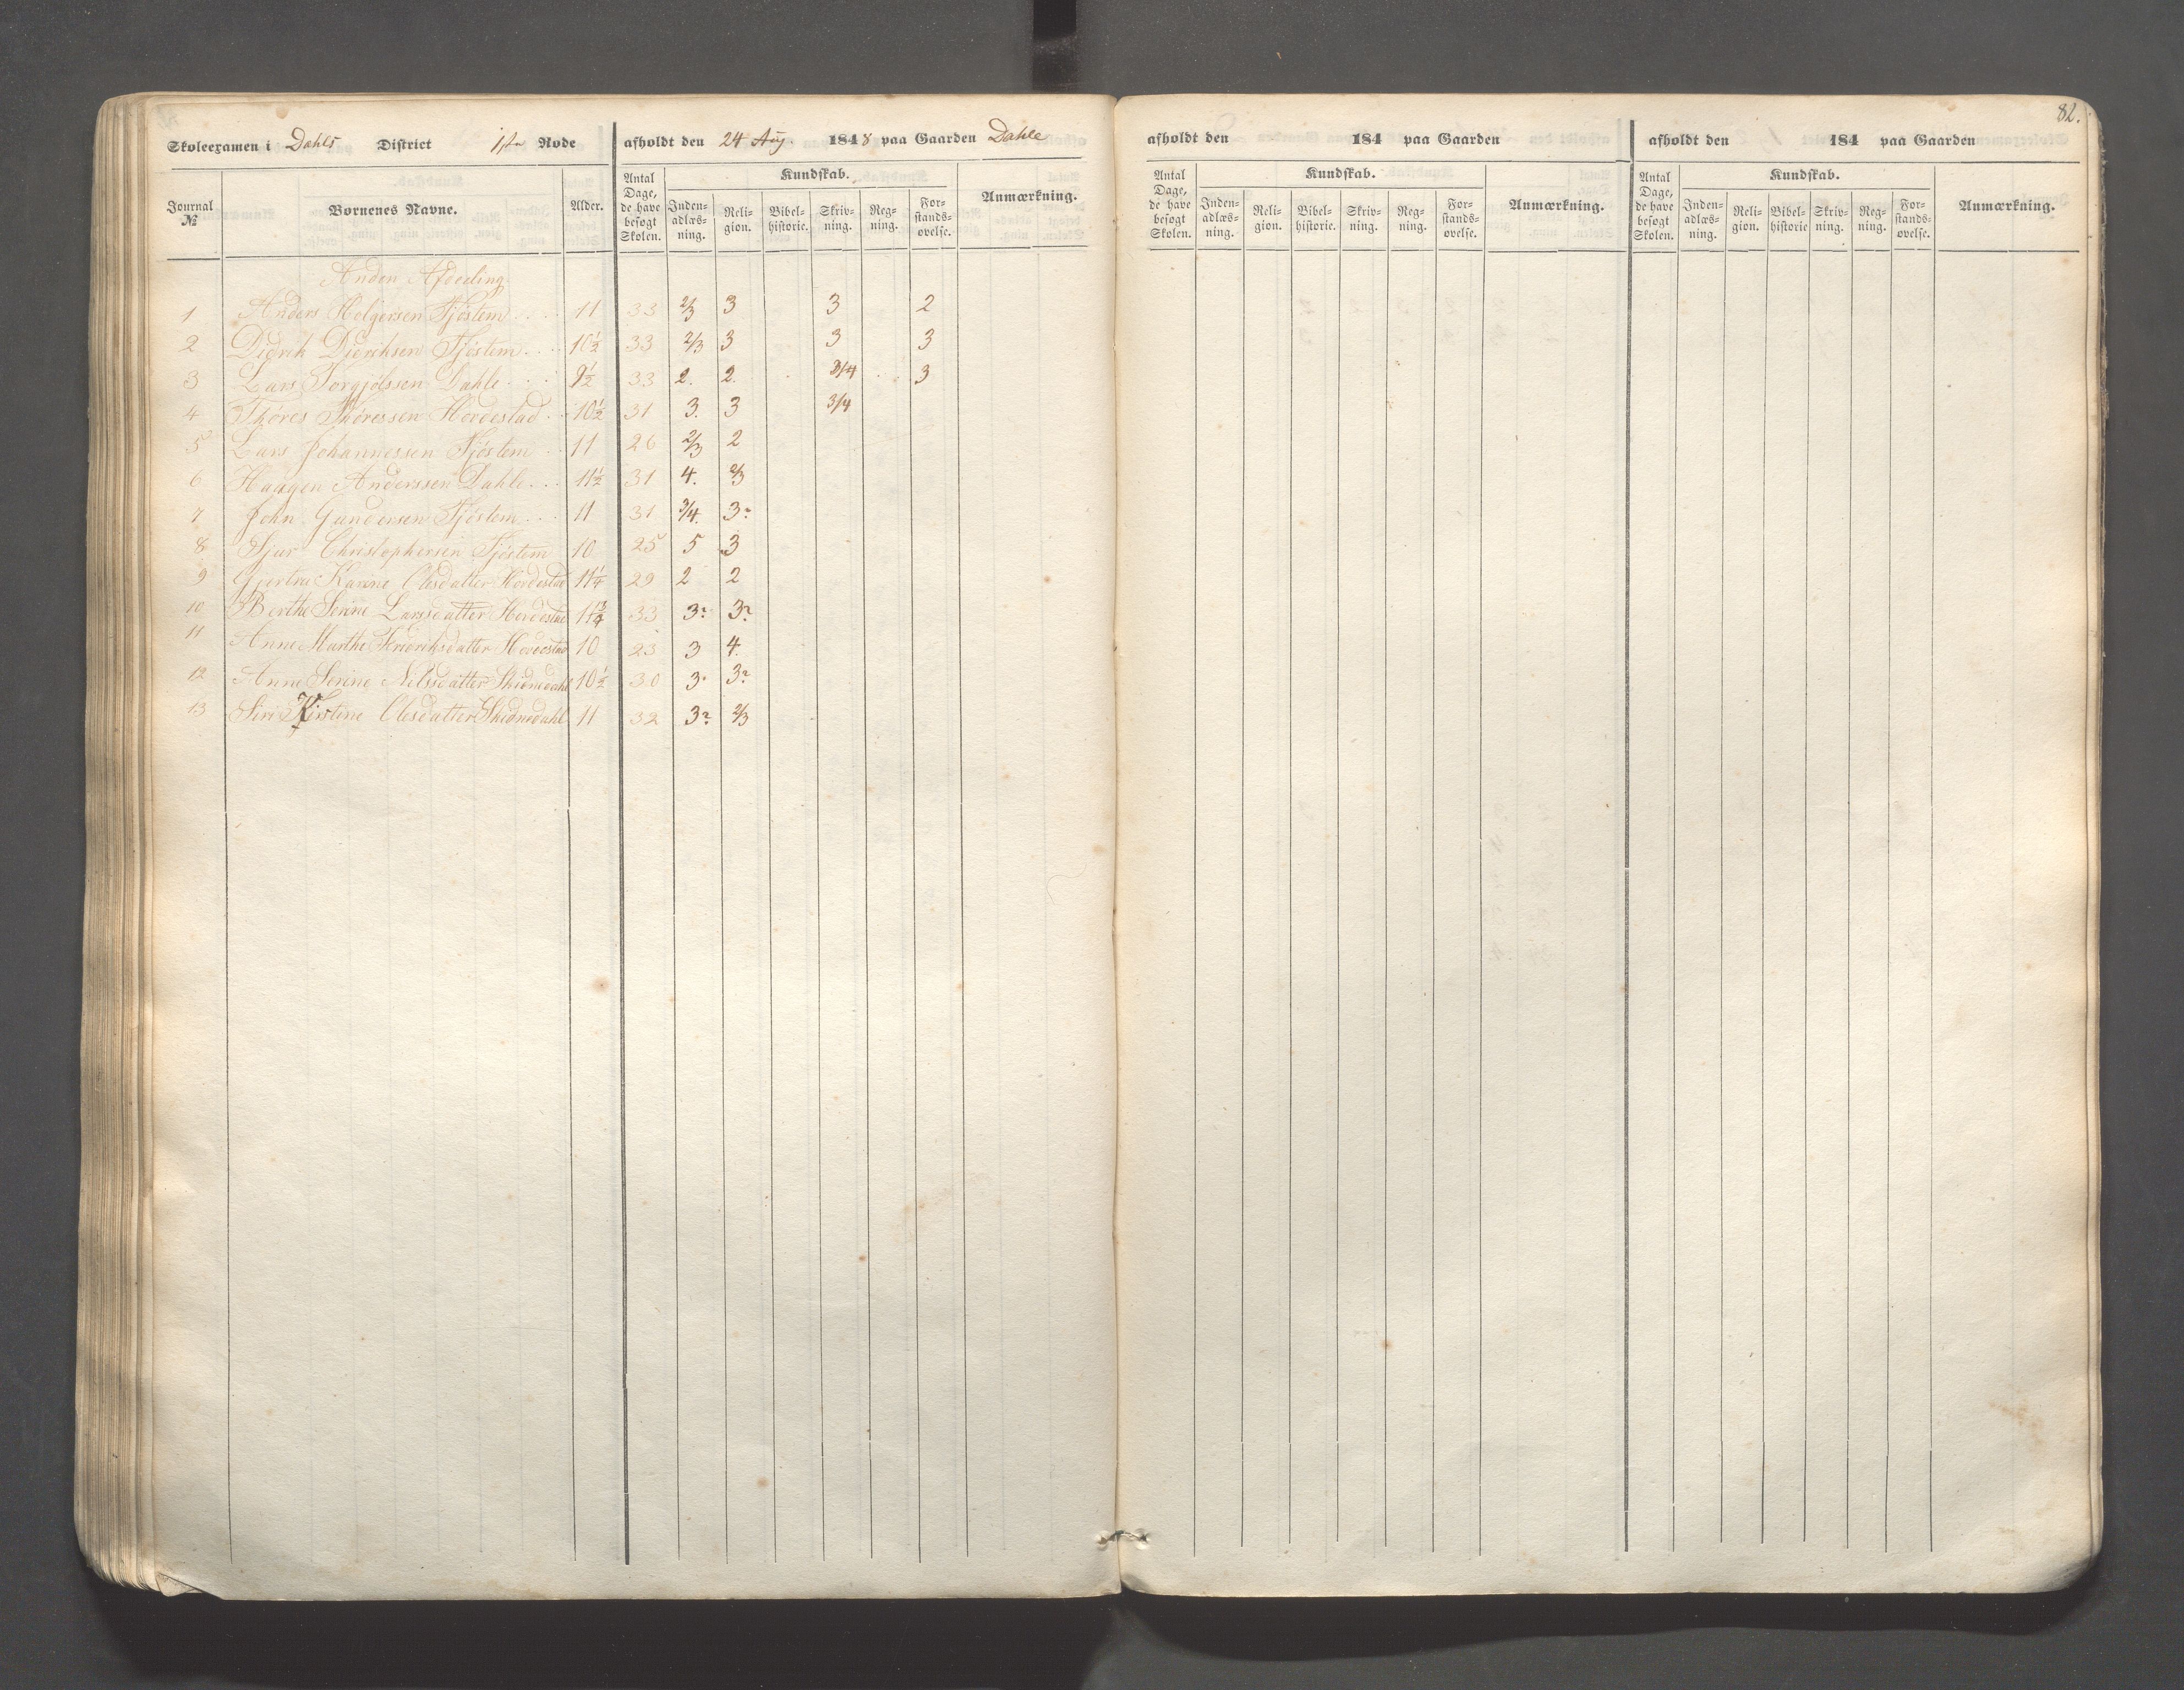 82.
Skoleexamen i Dahls District 1ste Rode afholdt den 24 Aug. 1848 paa Gaarden Dahle
Journal № Børnenes Navne. Alder. Antal Dage, de have besøgt Skolen. Kundskab. Inden-adlæs-ning. Reli-gion. Bibel-historie. Skriv-ning. Reg-ning. For-stands-øvelse. Anmærkning.
Anden Afdeling
1 Anders Helgersen Tjøstem 11 33 2/3 3 3 2
2 Didrik Didriksen Tjøstem 10½ 33 2/3 3 3 3
3 Lars Torgjølssen Dahle 9½ 33 2. 2. 3/4 3
4 Thøres Thøressen Hovdestad 10½ 31 3. 3 3/4
5 Lars Johannessen Tjøstem 11 26 2/3 2
6 Haagen Anderssen Dahle 11½ 31 4. 2/3
7 John Gundersen Tjøstem 11 31 3/4. 3?
8 Sjur Christophersen Tjøstem 10 25 5 3
9 Gjertru Karine Olesdatter Hovdestad 11¼ 29 2 2
10 Berthe Serine Larsdatter Hovdestad 11¾ 33 3? 3?
11 Anne Marthe Fredriksdatter Hovdestad 10 23 3 4.
12 Anne Serine Nilsdatter 10½ 30 3. 3?
13 Siri Kirstine Olesdatter 11 32 3? 2/3
afholdt den 184 paa Gaarden
Antal Dage, de have besøgt Skolen. Kundskab. Inden-adlæs-ning. Reli-gion. Bibel-historie. Skriv-ning. Reg-ning. For-stands-øvelse. Anmærkning.
afholdt den 184 paa Gaarden
Antal Dage, de have besøgt Skolen. Kundskab. Inden-adlæs-ning. Reli-gion. Bibel-historie Skriv-ning. Reg-ning. For-stands-øvelse. Anmærkning.